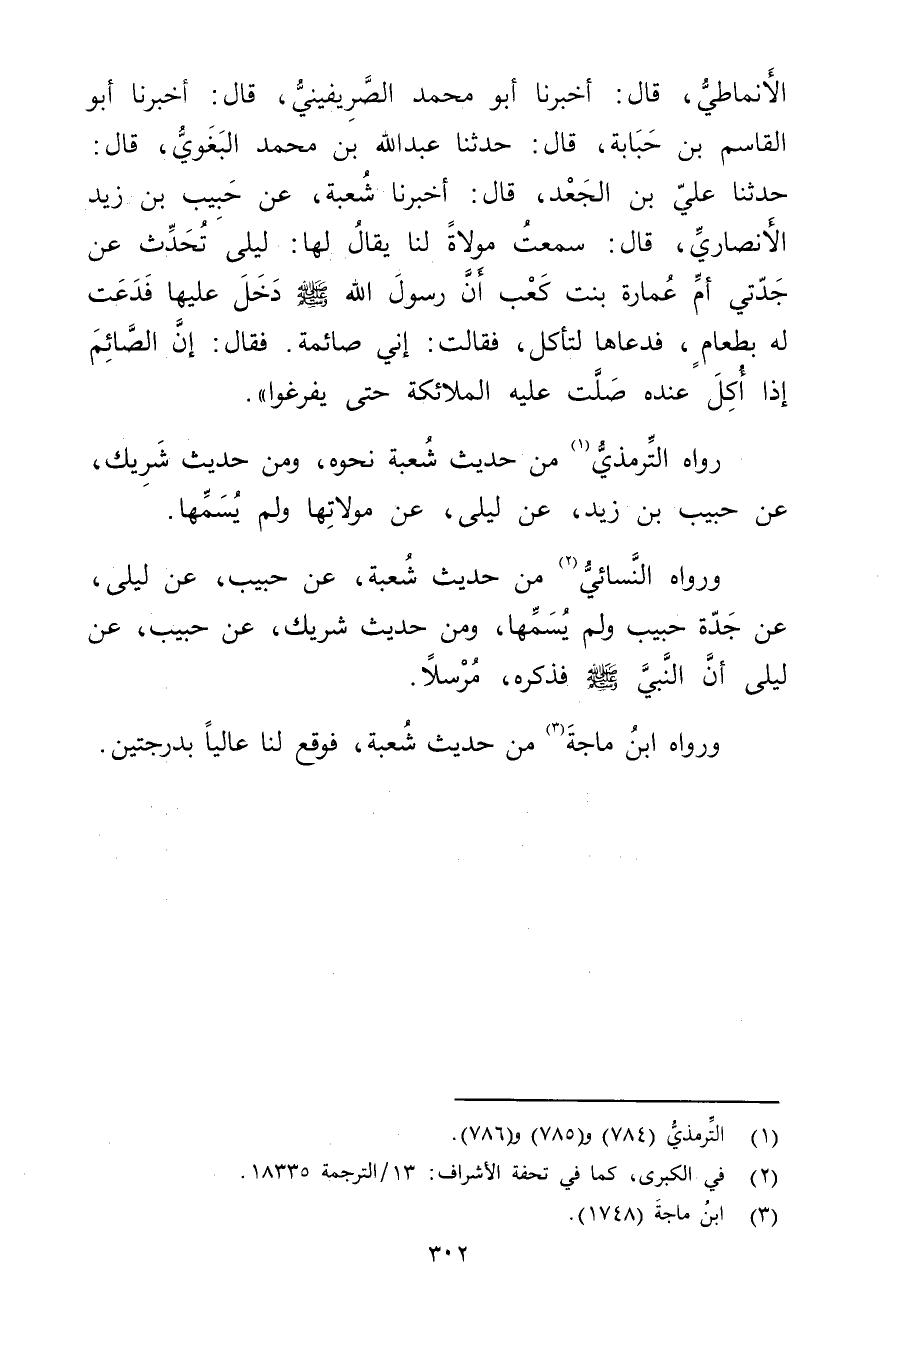 الأَنماطيُّ، قال: أخبرنا أبو محمد الصَّرِيفينيُّ، قال: أخبرنا أبو
القاسم بن حَبَابة، قال: حدثنا عبدالله بن محمد البَغَويُّ، قال:
حدثنا عليّ بن الجَعْد، قال: أخبرنا شُعبة، عن حَبِيب بن زيد
الأَنصاريِّ، قال: سمعتُ مولاةً لنا يقالُ لها: ليلى تُحَدِّث عن
جَدّتي أمِّ عُمارة بنت كَعْب أَنَّ رسولَ الله ﷺ دَخَلَ عليها فَدَعَت
له بطعامٍ، فدعاها لتأكل، فقالت: إني صائمة. فقال: إنَّ الصَّائِمَ
إذا أُكِلَ عنده صَلَّت عليه الملائكة حتى يفرغوا».
رواه التِّرمذيُّ(١) من حديث شُعبة نحوه، ومن حديث شَرِيك،
عن حبيب بن زيد، عن ليلى، عن مولاتِها ولم يُسَمِّها.
ورواه النَّسائيُّ(٢) من حديث شُعبة، عن حبيب، عن ليلى،
عن جَدّة حبيب ولم يُسَمِّها، ومن حديث شريك، عن حبيب، عن
ليلى أنَّ النَّبيَّ ﷺ فذكره، مُرْسلًا.
ورواه ابنُ ماجةَ(٣) من حديث شُعبة، فوقع لنا عالياً بدرجتين.
(١) التِّرمذيُّ (٧٨٤) و(٧٨٥) و(٧٨٦).
(٢) في الكبرى، كما في تحفة الأشراف: ١٣/الترجمة ١٨٣٣٥.
(٣) ابنُ ماجةَ (١٧٤٨).
٣٠٢